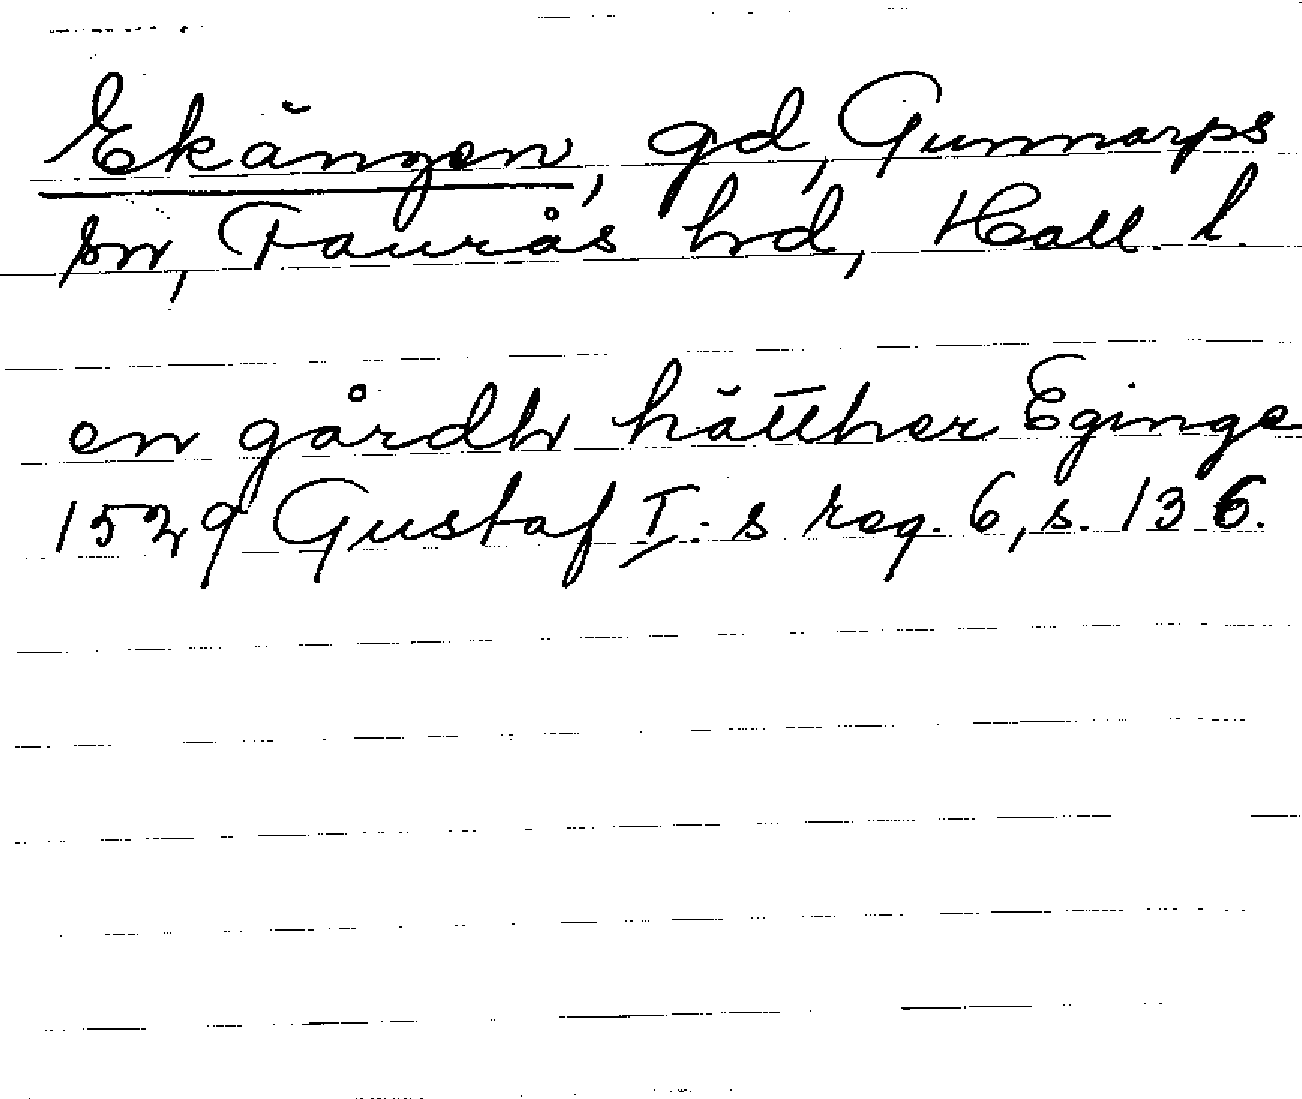 Ekängen, gd, Gunnarps
sn, Faurås hd, Hall. l.
en gårdh hätther Eginge
1529 Gustaf I:s reg. 6, s. 136.